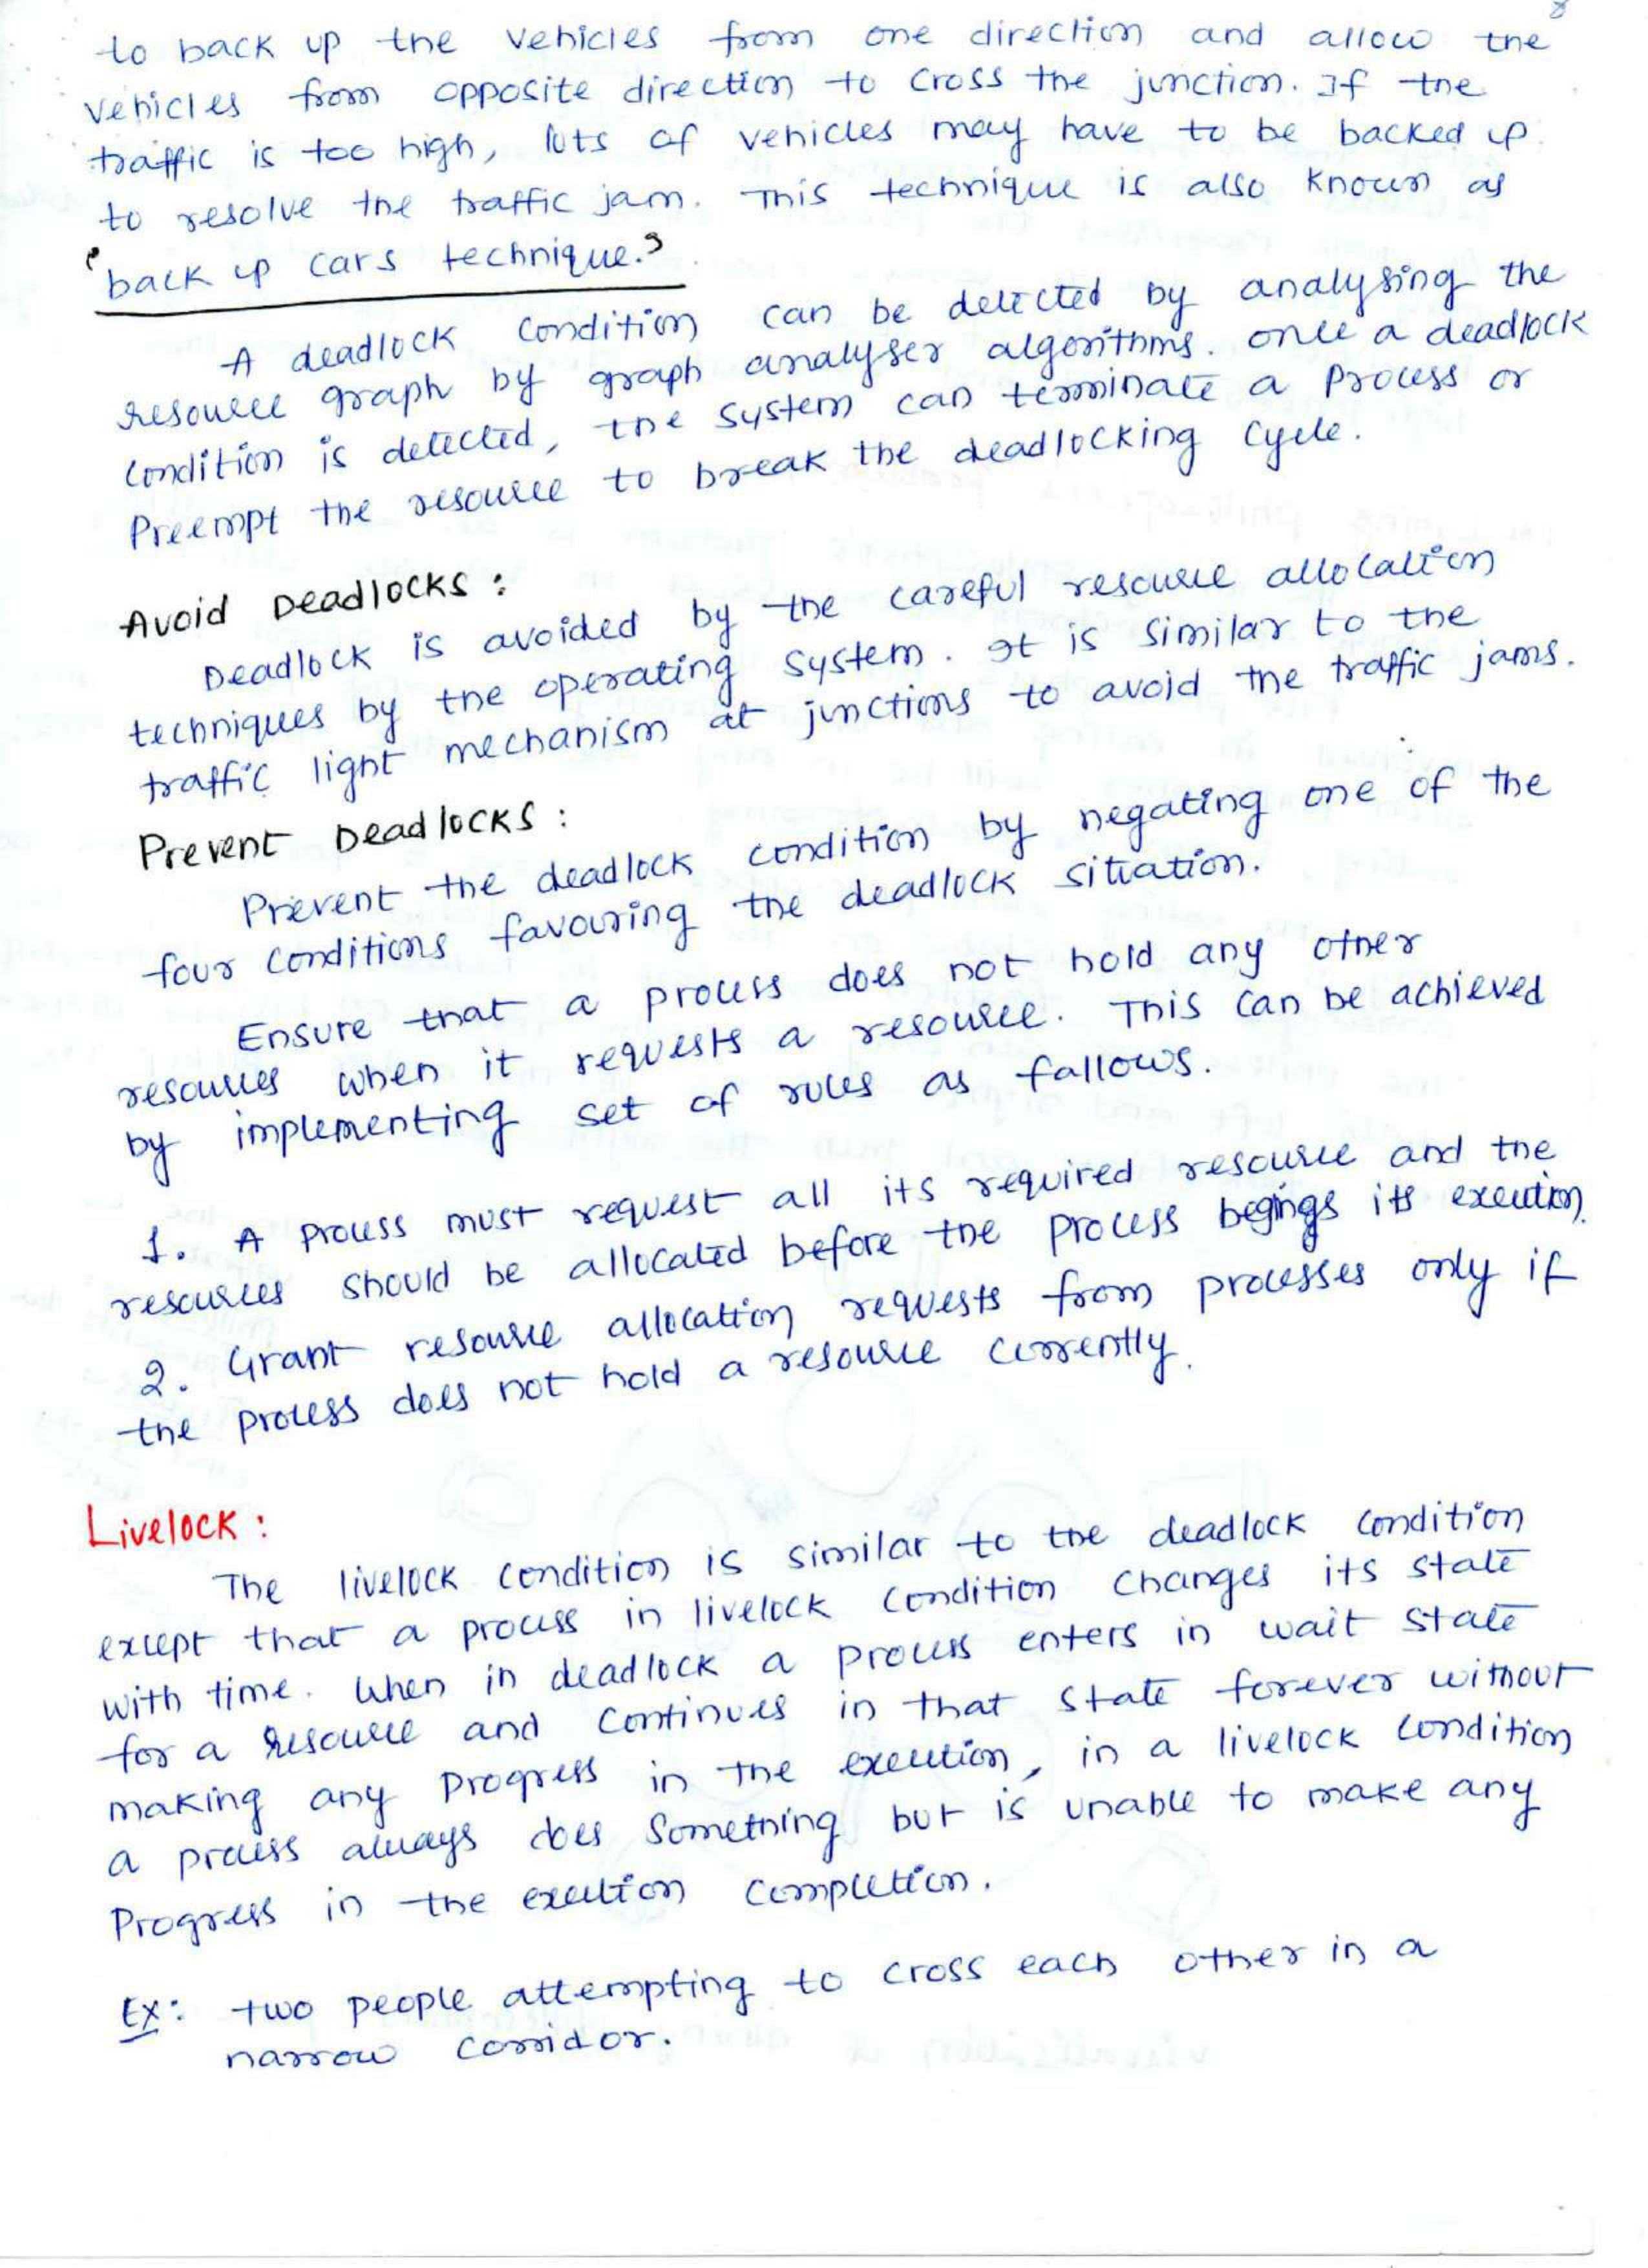 8
to back up the vehicles from one direction and allow the
vehicles from opposite direction to cross the junction. If the
traffic is too high, lots of vehicles may have to be backed up
to resolve the traffic jam. This technique is also known as
'back up cars technique.'
A deadlock condition can be detected by analysing the
resource graph by graph analyser algorithms. once a deadlock
condition is detected, the system can terminate a process or
Preempt the resource to break the deadlocking cycle.
Avoid Deadlocks :
Deadlock is avoided by the careful resource allocation
techniques by the operating system. It is similar to the
traffic light mechanism at junctions to avoid the traffic jams.
Prevent Deadlocks :
Prevent the deadlock condition by negating one of the
four conditions favouring the deadlock situation.
Ensure that a process does not hold any other
resources when it requests a resource. This can be achieved
by implementing set of rules as fallows.
1. A process must request all its required resource and the
resources should be allocated before the process begings its execution.
2. Grant resource allocation requests from processes only if
the process does not hold a resource currently.
Livelock :
The livelock condition is similar to the deadlock condition
except that a process in livelock condition changes its state
with time. When in deadlock a process enters in wait state
for a resource and continues in that state forever without
making any progress in the execution, in a livelock condition
a process always does something but is unable to make any
Progress in the execution completion.
Ex: two people attempting to cross each other in a
narrow corridor.